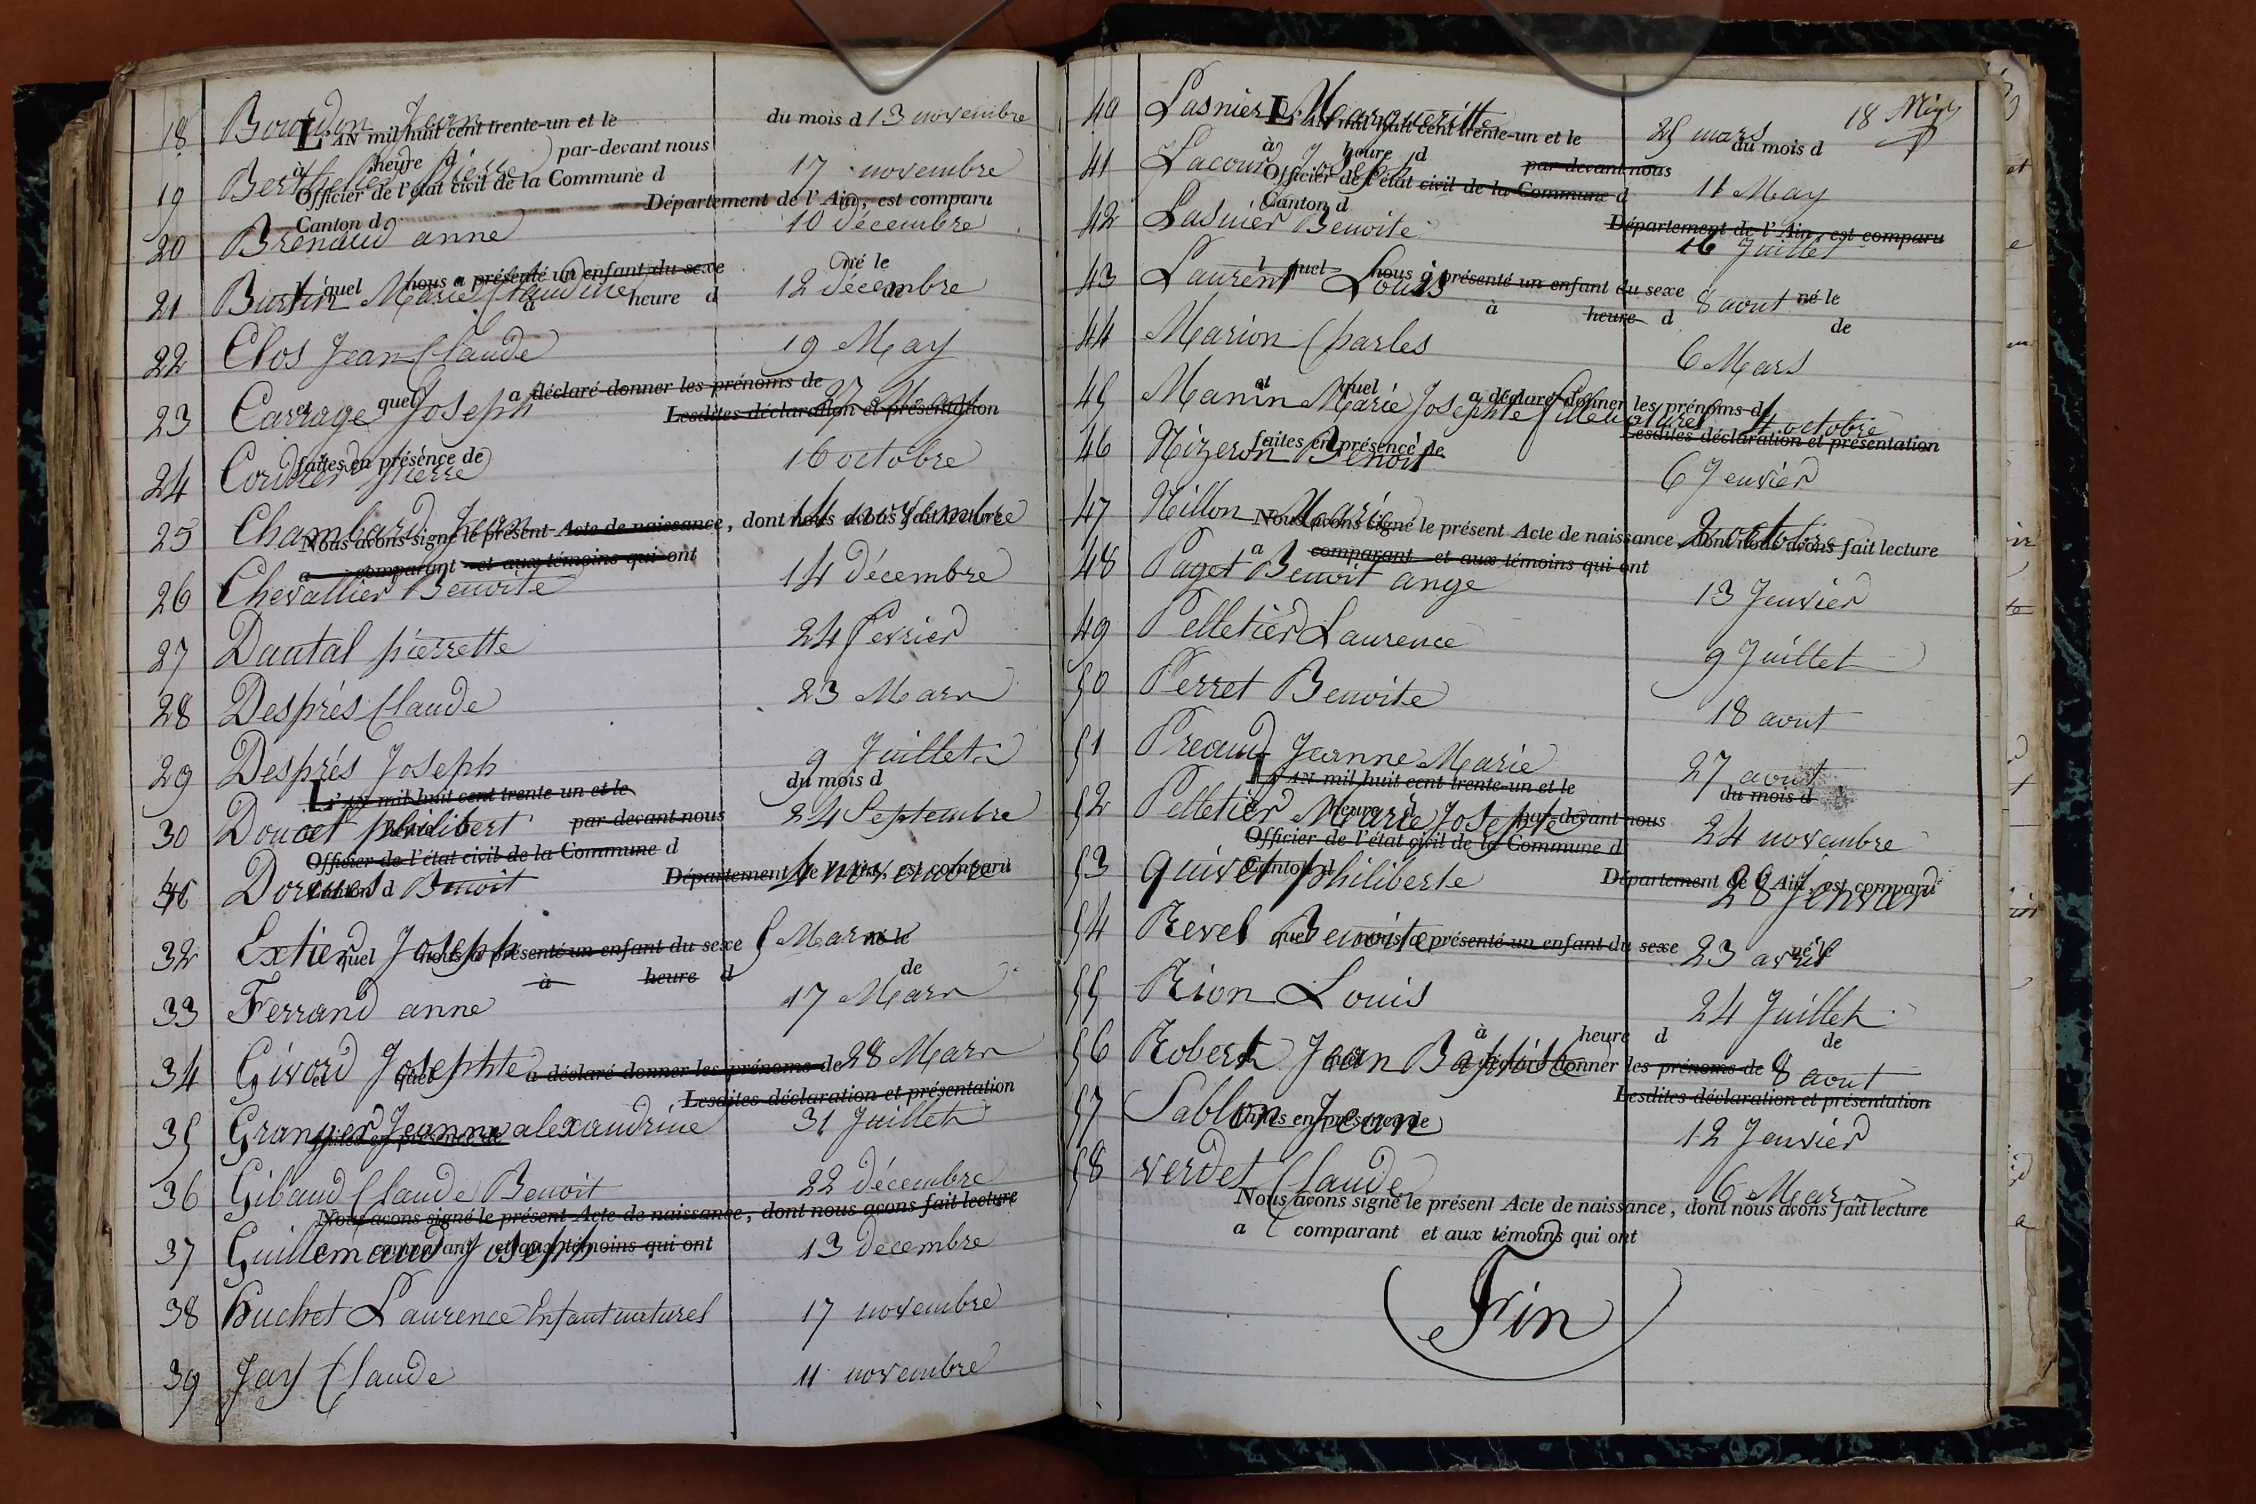 18 Bourdon Jean du mois d 13 novembre
L'AN mil huit cent trente-un et le
à heure d par-devant nous
19 Berthelier pierre 17 novembre
Officier de l'état civil de la Commune d
Département de l'Ain, est comparu
Canton d
20 Brenaud anne 10 Décembre
né le
quel nous a présenté un enfant du sexe
21 Burtin Marie Claudine 12 décembre
à heure d de
22 Clos Jean Claude 19 May
et quel a déclaré donner les prénoms de
23 Carrage Joseph 27 May
Lesdites déclaration et présentation
faites en présence de
24 Cordier pierre 16 octobre
25 Chambard Jean 14 novembre
Nous avons signé le présent Acte de naissance, dont nous avons fait lecture
a comparant et aux témoins qui ont
26 Chevallier Benoite 14 Décembre
27 Dantal pierrette 24 fevrier
28 Desprès Claude 23 Mars
29 Desprès Joseph 9 Juillet
L'AN mil huit cent trente-un et le du mois d
30 Doucet philibert 24 Septembre
à heure d par-devant nous
Officier de l'état civil de la Commune d
Benoit novembre
Canton d Département de l'Ain, est comparu
32 Extier Joseph 5 Mars
quel nous a présenté un enfant du sexe né le
à heure d de
33 Ferrand anne 17 Mars
34 Givord Josephte 28 Mars
et quel a déclaré donner les prénoms de
Lesdites déclaration et présentation
35 Granger Jeanne alexandrine 31 Juillet
faites en présence de
36 Gibaud Claude Benoit 22 décembre
Nous avons signé le présent Acte de naissance, dont nous avons fait lecture
37 Guillemaud Joseph 13 décembre
a comparant et aux témoins qui ont
38 huchet Laurence Enfant naturel 17 novembre
39 Jay Claude 11 novembre
40 Lasnier Margueritte 25 mars
18
L'AN mil huit cent trente-un et le du mois d
à heure d par-devant nous
41 Lacour Joseph 11 May
Officier de l'état civil de la Commune d
Canton d
42 Lasnier Benoite 16 Juillet
Département de l'Ain, est comparu
quel nous a présenté un enfant du sexe
43 Laurent Louis 8 aout
né le
à heure d de
44 Marion Charles 6 Mars
et quel a déclaré donner les prénoms d
45 Manin Marie Josephte fille naturel 4 octobre
Lesdites déclaration et présentation
faites en présence de
46 Nizeron Benoit 6 Jenvier
47 Nillon Marie 2 octobre
Nous avons signé le présent Acte de naissance, dont nous avons fait lecture
a comparant et aux témoins qui ont
48 Paget Benoit ange 13 Jenvier
49 Pelletier Laurence 9 Juillet
50 Perret Benoite 18 aout
51 Preaud Jeanne Marie 27 aout
L'AN mil huit cent trente-un et le du mois d
52 Pelletier Marie Josephte 24 novembre
à heure d par-devant nous
Officier de l'état civil de la Commune d
53 quivet philiberte 28 Jenvier
Canton d Département de l'Ain, est comparu
54 Revel Benoite 23 avril
quel nous a présenté un enfant du sexe né le
55 Rion Louis 24 Juillet
à heure d de
56 Robert Jean Baptiste 8 aout
et quel a déclaré donner les prénoms de
Lesdites déclaration et présentation
57 Sablon Jean 12 Jenvier
faites en présence de
58 verdet Claude 6 Mars
Nous avons signé le présent Acte de naissance, dont nous avons fait lecture
a comparant et aux témoins qui ont
Fin